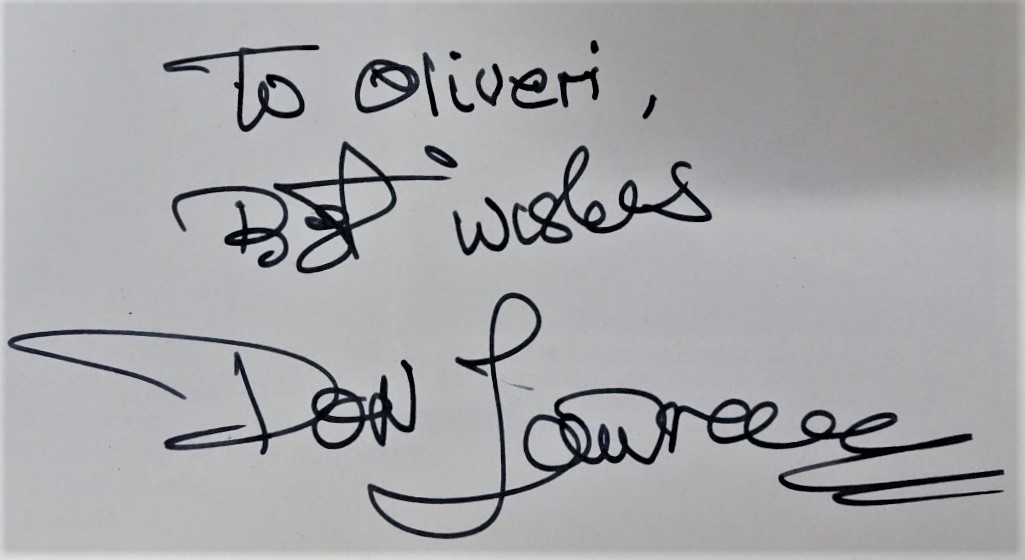 To Oliveri,
Best wishes
Don Lawrence